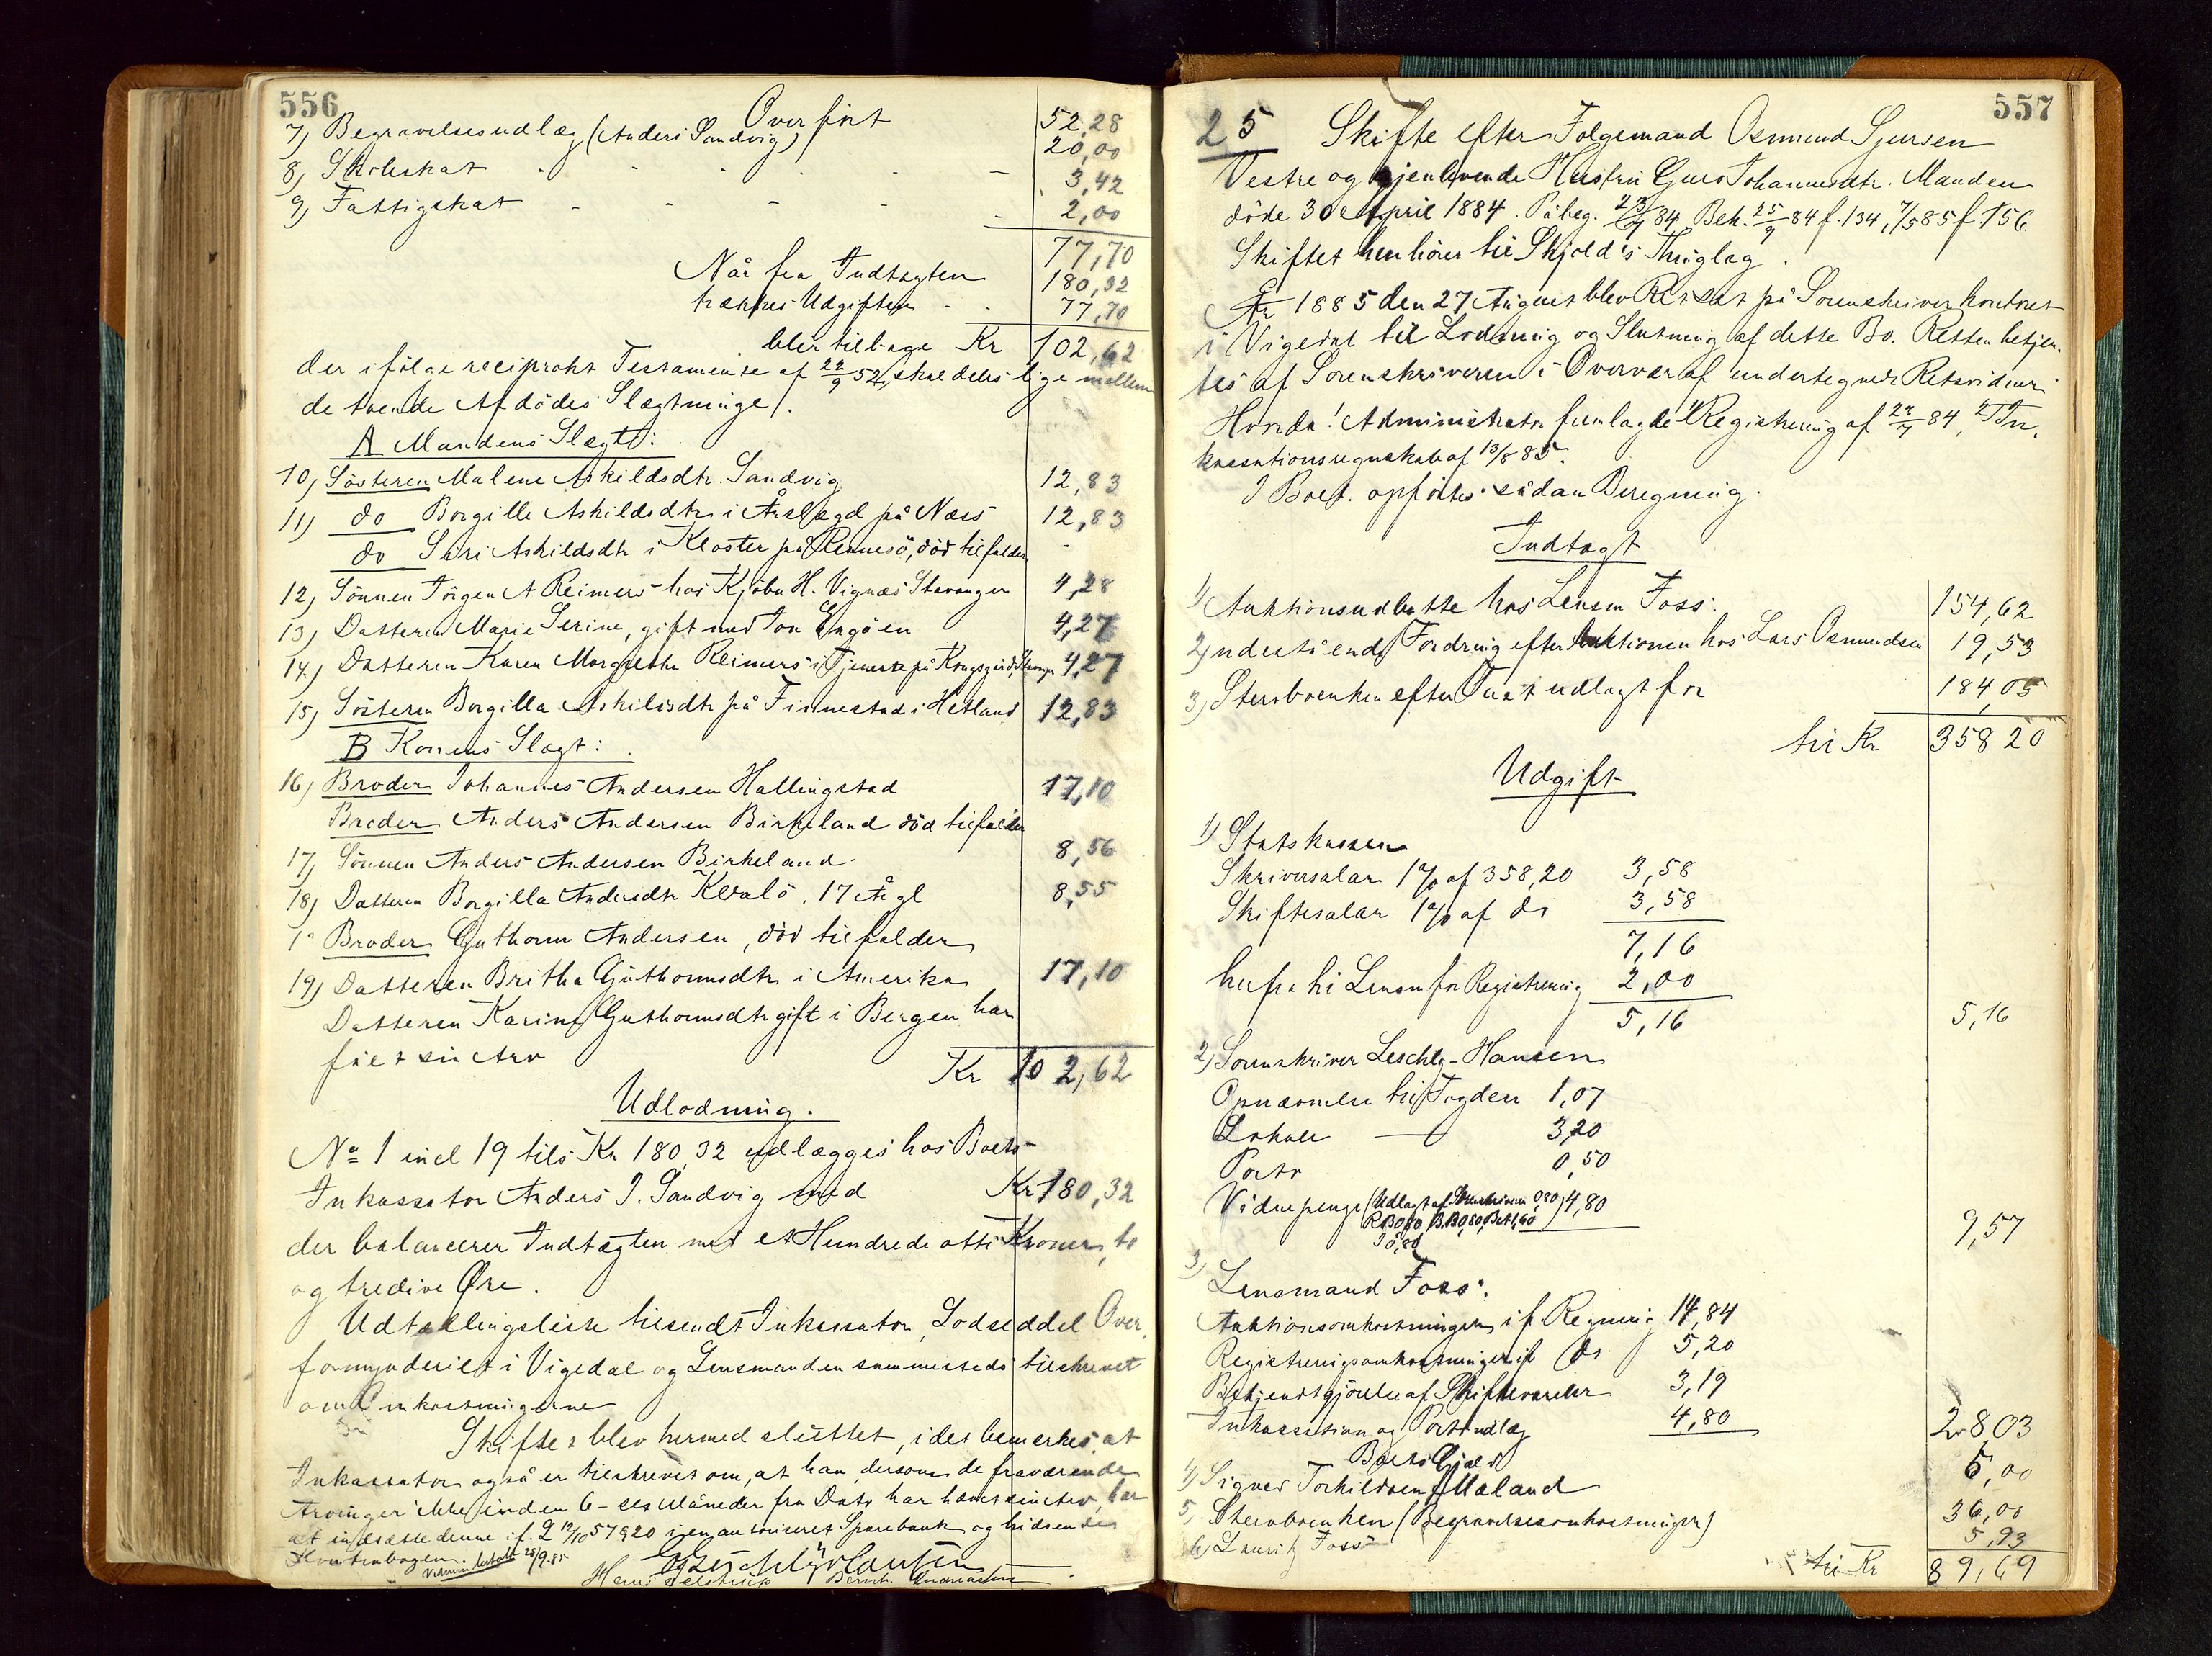 556
Overført 52,28
7) Begravelsesudlæg (Anders Sandvig) 20,00
8) Skoleskat 3,42
9) Fattigskat 2,00
77,70
Når fra Indtægten 180,32
trækkes Udgiften 77,70
blir tilbage Kr 102,62
der ifölge reciprokt Testamente af 22/9 52, skal deles lige mellem
de tvende Afdödes Slægtninge.
A Mandens Slægt:
10) Søsteren Malene Askildsdtr. Sandvig 12,83
11) do Borgille Askildsdtr i Årslægd på Næss 12,83
do Siri Askildsdtr i Kloster på Rennesö, död tilfalder
12) Sönnen Törgen A Reimers hos Kjöbm H. Vignæs Stavanger 4,28
13) Datteren Marie Serine, gift med Jon Engöen 4,27
14) Datteren Karen Margrethe Reimers i Tjeneste på Kongsgård, Stavanger 4,27
15) Søsteren Borgilla Askildsdtr på Finnestad i Hetland 12,83
B Konens Slægt:
16) Broder Johannes Andersen Hallingstad 17,10
Broder Anders Andersen Birkeland död tilfalder
17) Sönnen Anders Andersen Birkeland 8,56
18) Datteren Borgilla Andersdtr Kvalö, 17 År gl 8,55
Broder Guthorm Andersen, död tilfalder
19) Datteren Britha Guthormsdtr i Amerika 17,10
Datteren Karine Guthormsdtr gift i Bergen har
fået sin Arv
Kr 102,62
Udlodning.
No 1 incl 19 tils Kr 180,32 udlægges hos Boets
Inkassator Anders J. Sandvig med Kr 180,32
der balancerer Indtægten med et Hundrede otti Kroner, to
og tredive Øre.
Udtællingsliste tilsendt Inkassator, Lodseddel Over,
formynderiet i Vigedal og Lensmanden sammesteds tilskrevet
om Omkostningerne
Skiftet blev hermed sluttet, idet bemerkes, at
Inkassator også er tilskrevet om, at han, dersom de fraværende
Arvinger ikke inden 6 - sex Måneder fra Dato har hævet sin Arv, har
at indsætte denne if. L 12/10 57 § 20 i en autoriseret Sparebank og hidsende
Kontrabogen.
557
25 Skifte efter Folgemand Osmund Sjursen
Vestre og gjenlevende Hustru Guro Johannesdtr. Manden
döde 30 April 1884. Påbeg. 23/7 84, Beh. 25/9 84 f. 134, 7/5 85 f 156.
Skiftet henhörer til Skjold's Thinglag.
År 1885 den 27 August blev Ret sat på Sorenskriverkontoret
i Vigedal til Lodning og Slutning af dette Bo. Retten betjen-
tes af Sorenskriveren i Overvær af undertegnede Retsvidner
Hvorda! Administrator fremlagde 1) Registrering af 22/7 84, 2) In-
kassationsregnskab af 13/8 85.
I Boet opförtes sådan Beregning.
Indtægt
1) Auktionsudbytte hos Lensm Foss: 154,62
2) Indestående Fordring efter Auktionen hos Lars Osmundsen 19,53
3) Stervboenken efter Taxt udlagt for 184,05
til Kr 358 20
Udgift
1) Statskassen
Skriversalar 1 % af 358,20 3,58
Skiftesalar 1 % af do 3,58
7,16
herfra til Lensm for Registrering 2,00
5,16 5,16
2) Sorenskriver Leschly-Hansen
Opnævnelse til Fogden 1,07
Lokale 3,20
Porto 0,50
Vidnepenge (Udlagt af Skriveren 0,80) 4,80
9,57
3) Lensmand Foss:
Auktionsomkostninger if. Regning 14,84
Registreringsomkostninger if do 5,20
Bekjendtgjörelse af Skiftevarsler 3,19
Inkassation og Portoudlæg 4,80 2803
Boets Gjæld
4) Sigved Torkildsen Mæland 5,00
5) Stervboenken (Begravelsesomkostninger) 36,00
6) Lauritz Foss 5,93
til Kr 89,69